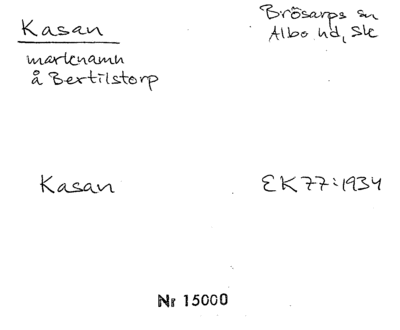 Kasan
Brösarps sn
Albo hd, Sk
marknamn
å Bertilstorp
Kasan
EK 77:1934
Nr 15000